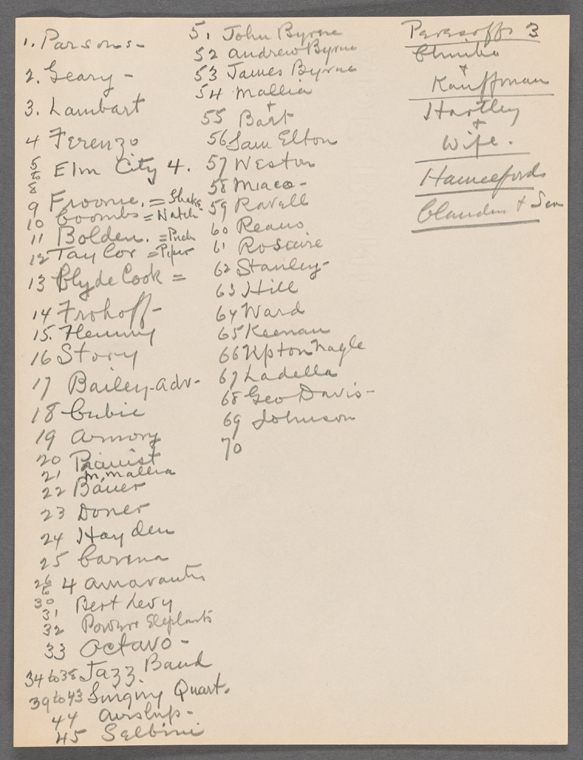 1. Parsons -
2. Geary -
3. Lambart
4 Ferenzo
5 to 8 Elm City 4.
9 Froome. =
10 Coombs =
11 Bolden. =
12 Taylor = Piper
13 Clyde Cook =
14 Frohoff -
15. Fleming
16 Story
17 Bailey - adv -
18 Cubic
19 Armory
20 Pianist
21 M. Mallia
22 Bauer
23 Doner
24 Hayden
25 Carena
26 to 30 4 Amaranths
31 Bert Levy
32 Powers Elephants
33 Octavo -
34 to 38 Jazz. Band
39 to 43 Singing Quart.
44 Airship -
45 Selbini
51 John Byrne
52 Andrew Byrne
53 James Byrne
54 Mallia
+
55 Bart
56 Sam Elton
57 Weston
58 Maco -
59 Ravell
60 Reano
61 Rosaire
62 Stanley -
63 Hill
64 Ward
65 Keenan
66 Upton Nagle
67 Ladella
68 Geo Davis -
69 Johnson
70
3
+
Kauffman
Hartley
+
Wife.
Hannefords
+ Son